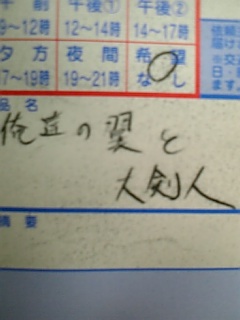 午前 午後① 午後②
9〜12時 12〜14時 14〜17時
夕方 夜間 希望
17〜19時 19〜21時 なし
依頼
届け
※交
日・
ます。
品名
俺達の翼と
大剣人
摘要